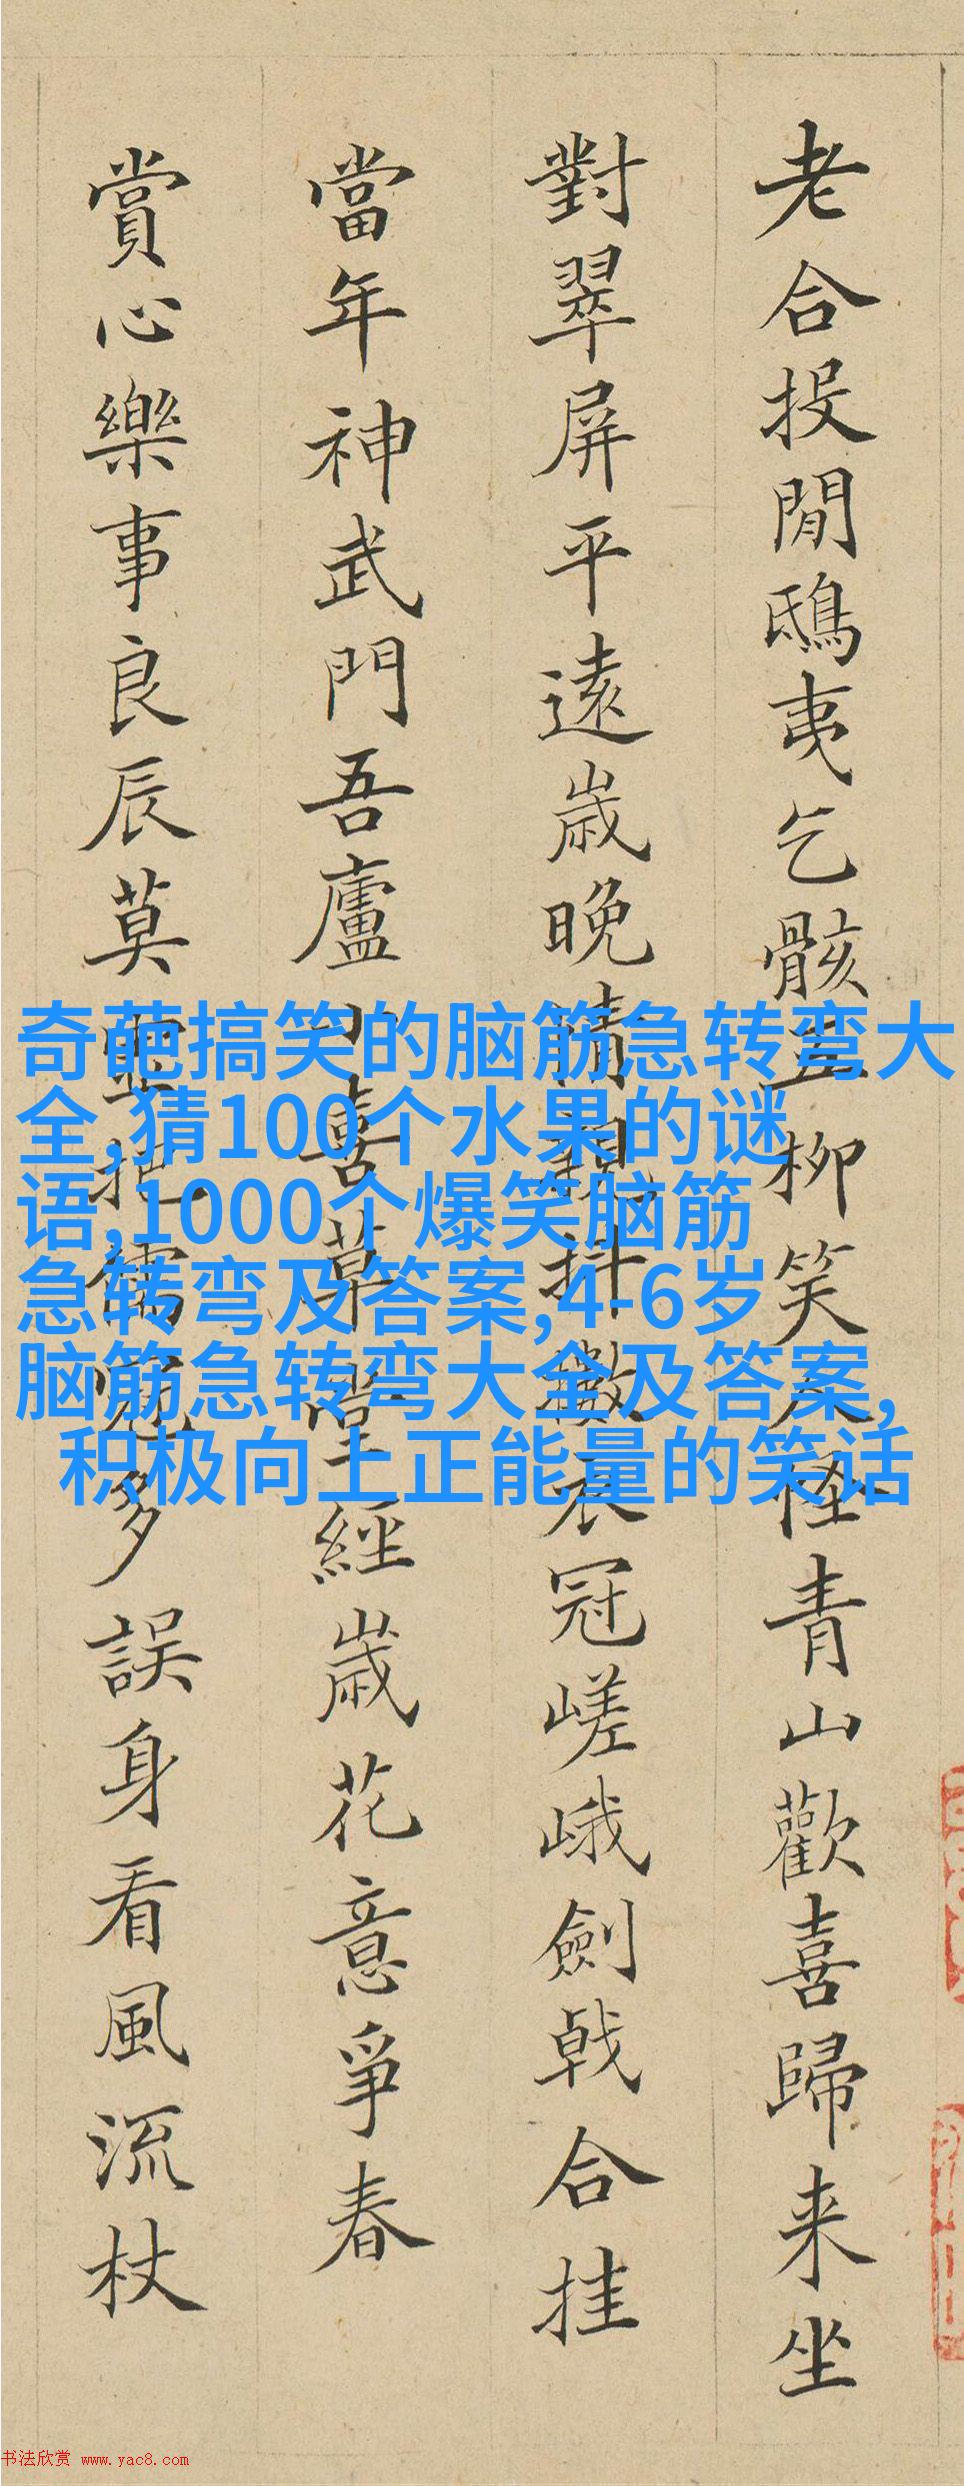 老合投閒鴟夷乞骸柳笑人怪青山歡喜歸来坐
對翠屏平遠歲晚情親抖擻衣冠嵯峨劍戟合挂
當年神武門吾廬小喜草堂經歲花意爭春
賞心樂事良辰莫把儒冠多誤身看風流杖
奇葩搞笑的脑筋急转弯大
全,猜100个水果的谜
语,1000个爆笑脑筋
急转弯及答案,4-6岁
脑筋急转弯大全及答案,
积极向上正能量的笑话
书法欣赏 www.yac8.com